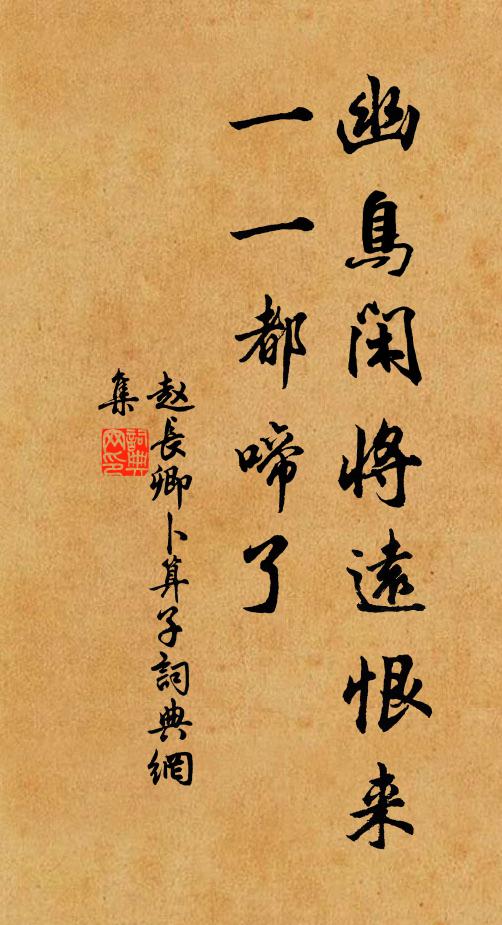 幽鳥閑將遠恨来
一一都啼了
赵長卿卜算子詞典網
集
詞典
网印